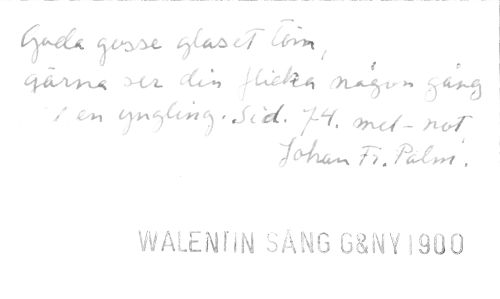 Goda gosse glaset töm,
gärna ser din flicka någon gång
i en yngling. Sid. 74. mel-not,
Johan Fr. Palm.
WALENTIN SÅNG G&NY 1900